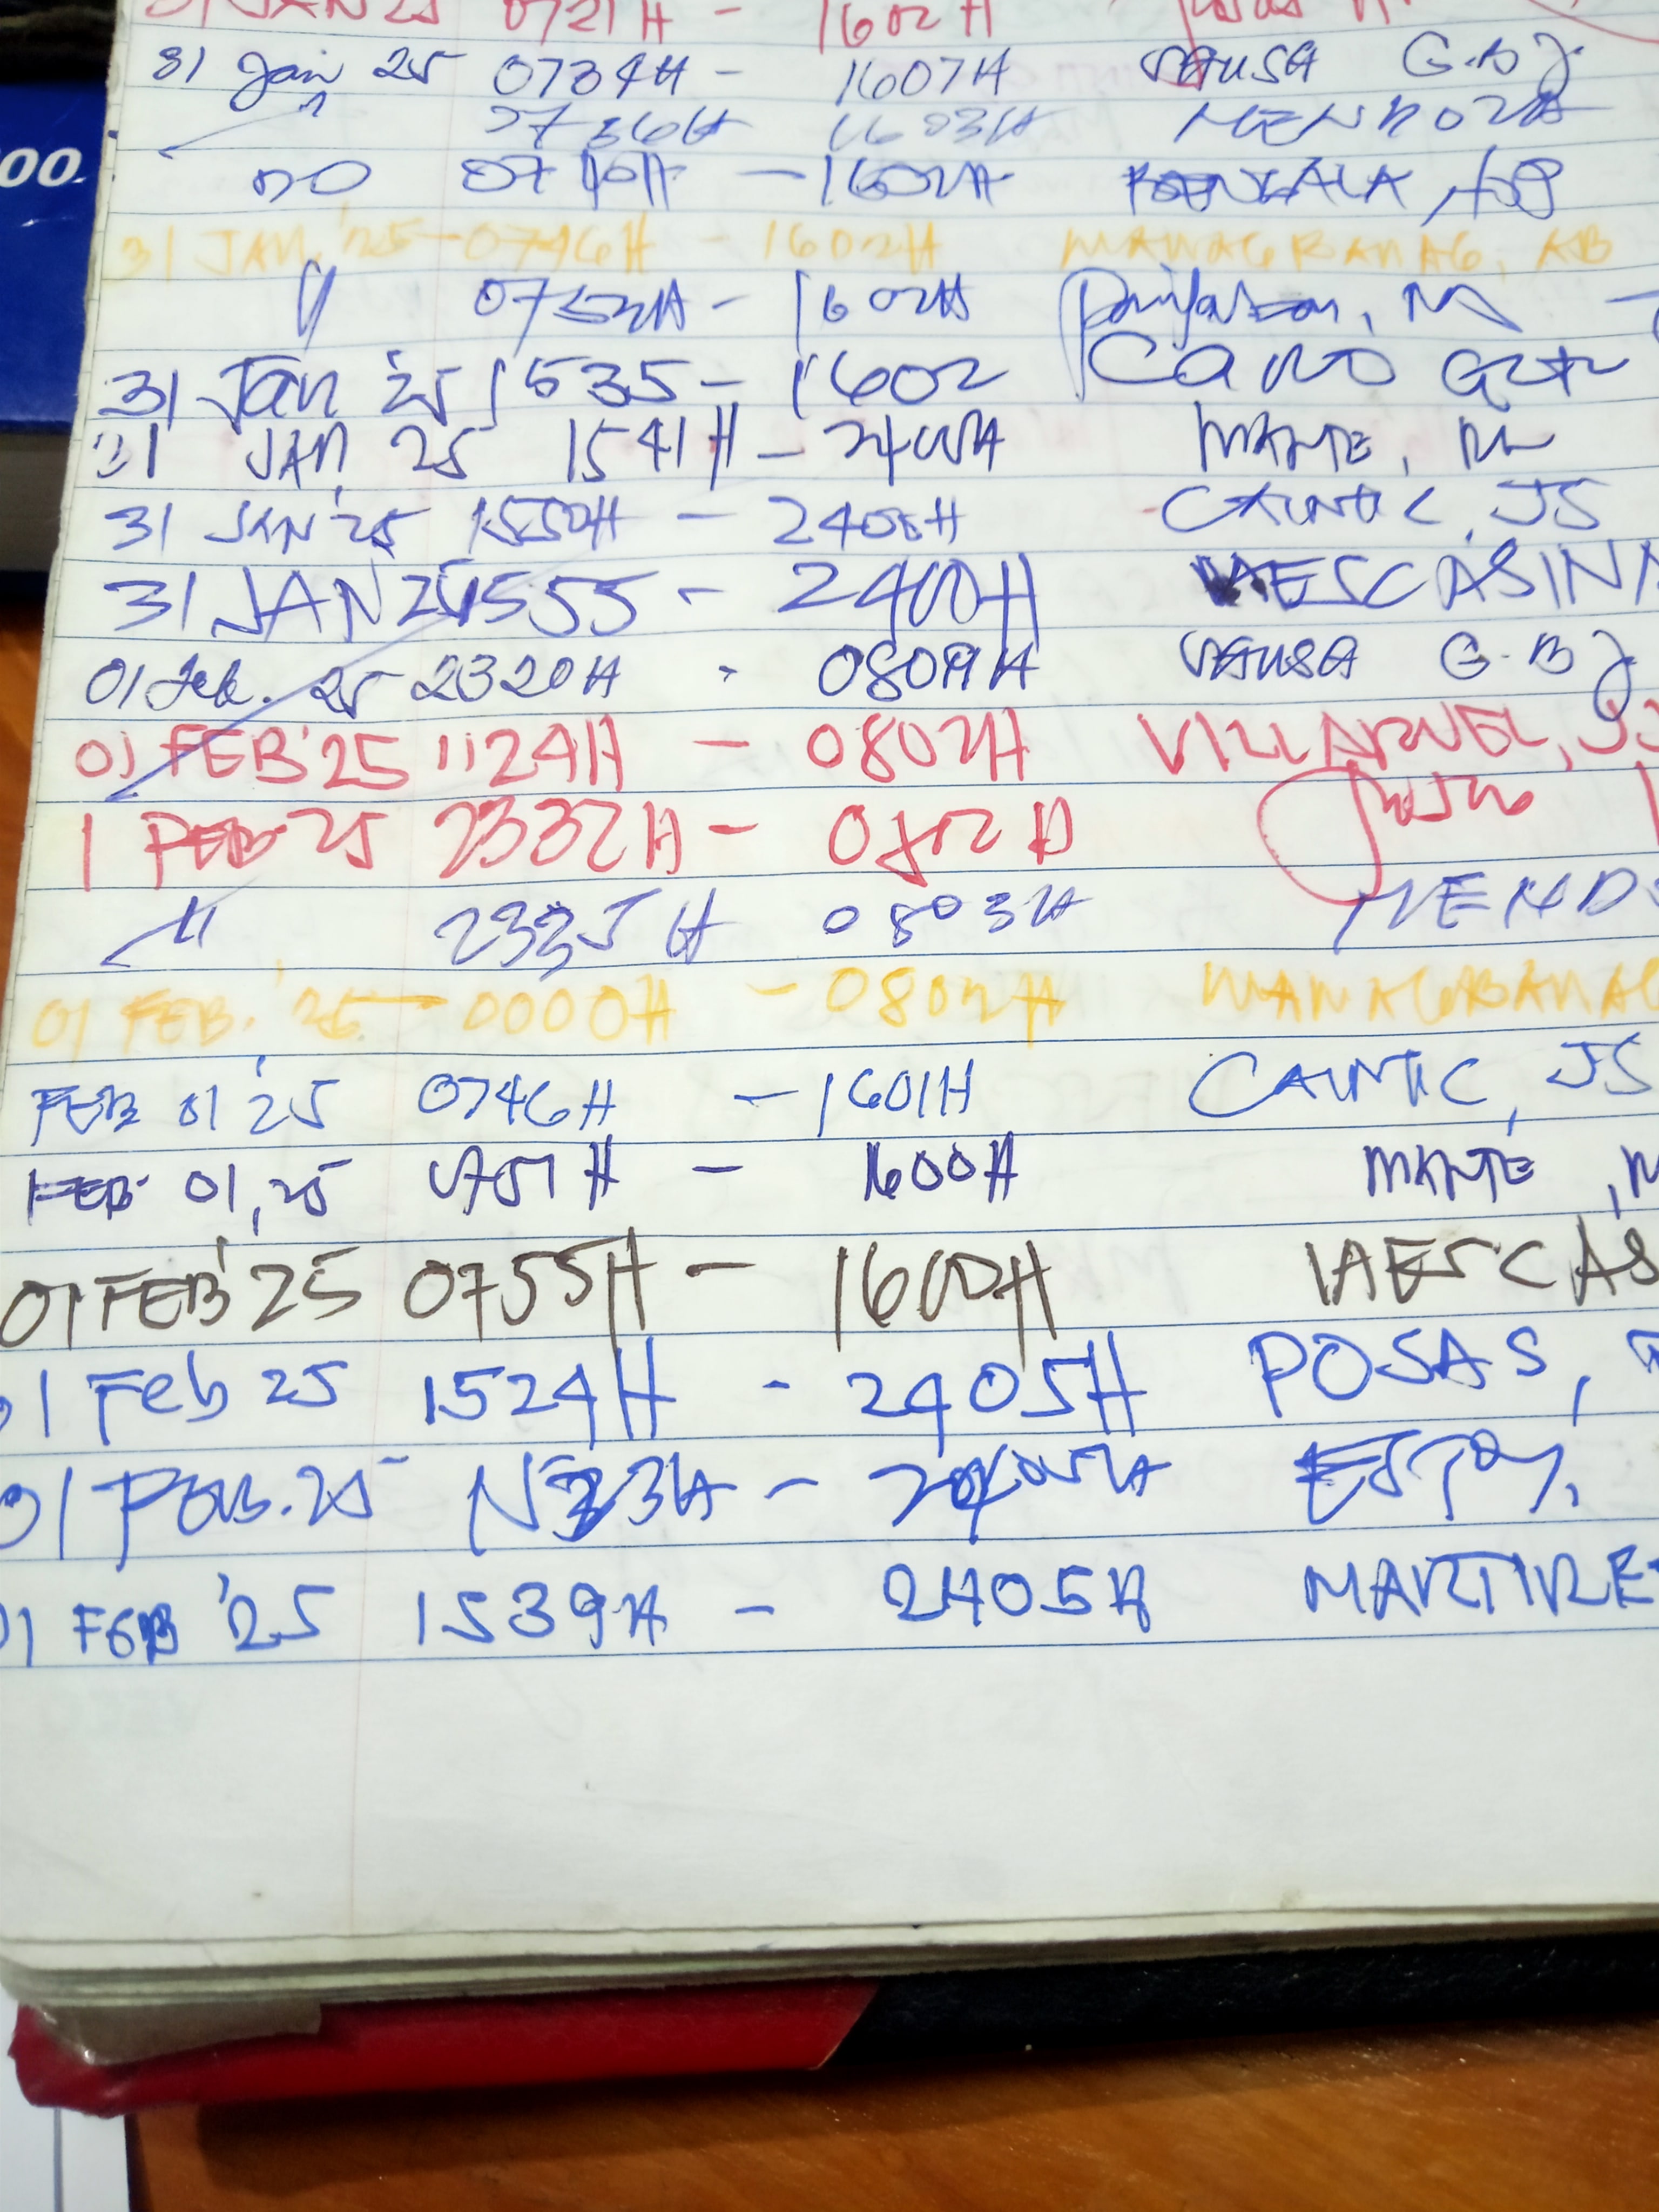 00.
31 JAN 25 0721H - 1602H
31 Jan 25 0734H - 1607H SAUSA G.B J.
" 0736H 1603H MENDOZA
DO 07 H - 1602H
31 JAN. '25 - 0746H - 1602H MANAGBANAG, AB
" 0752H - 1602H
31 Jan '25 1535 - 1602 CANO
31 JAN, 25 1541H - 2400H MANTE,
31 JAN '25 1550H - 2400H CAUNTIC, JS
31 JAN 25 1555 - 2400H VAESCASINA
01 Feb. 25 2320H - 0809H SAUSA G.B J.
01 FEB '25 1124H - 0802H VILLARUEL, JJ
1 FEB 25 2332H - 0812H
" 2335H 0803H MENDO
01 FEB. '25 - 0000H - 0802H MANAGBANAG
FEB 01 '25 0746H - 1601H CAUNTIC, JS
FEB 01, 25 0751H - 1600H MANTE, M
01 FEB '25 0755H - 1600H VAESCAS
01 Feb 25 1524H - 2405H POSAS,
01 FEB. 25 - 2405H ESTOY,
01 FEB '25 1539H - 2405H MARTIRE